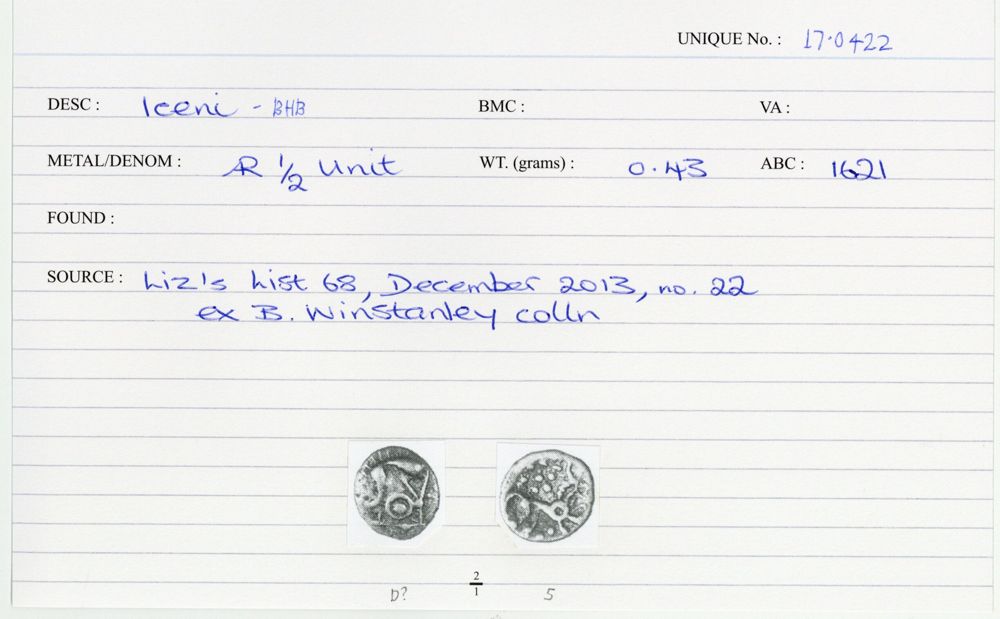 UNIQUE No. : 17·0422
DESC : Iceni - BHB BMC : VA :
METAL/DENOM : AR 1/2 Unit WT. (grams) : 0.43 ABC : 1621
FOUND :
SOURCE : Liz's List 68, December 2013, no. 22
ex B. Winstanley colln
2
D? 1 5